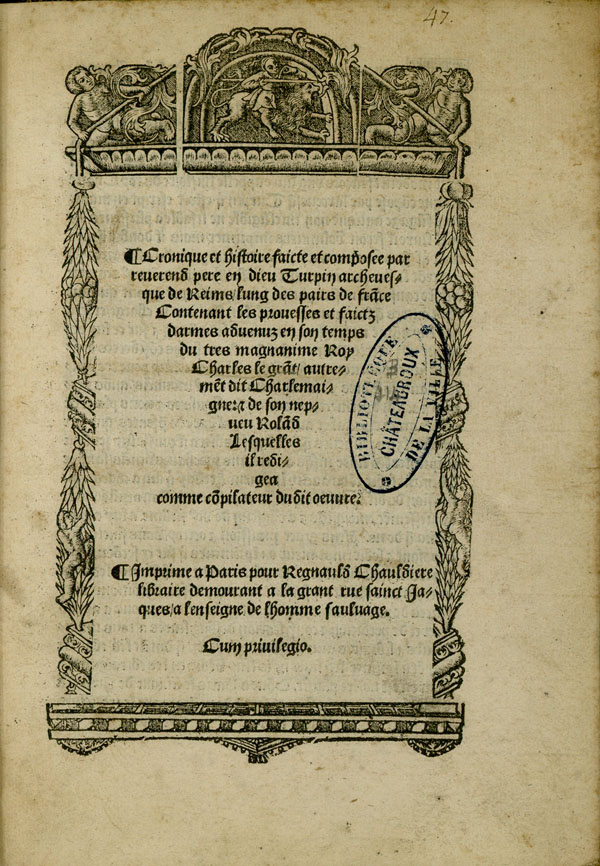 47.
¶Cronique et histoire faicte et composee par
reverend pere en dieu Turpin archeves⸗
que de Reims lung des pairs de frãce
Contenant les prouesses et faictz
darmes advenuz en son temps
du tres magnanime Roy
Charles le grãt/ autre⸗
mẽt dit Charlemai⸗
gne: ⁊ de son nep⸗
veu Rolãd
Lesquelles
il redi⸗
gea
comme cõpilateur dudit oeuvre.
¶Imprime a Paris pour Regnauld Chauldiere
libraire demourant a la grant rue sainct Ja⸗
ques/a lenseigne de lhomme saulvage.
Cum privilegio.
BIBLIOTHÈQUE
CHÂTEAUROUX
DE LA VILLE